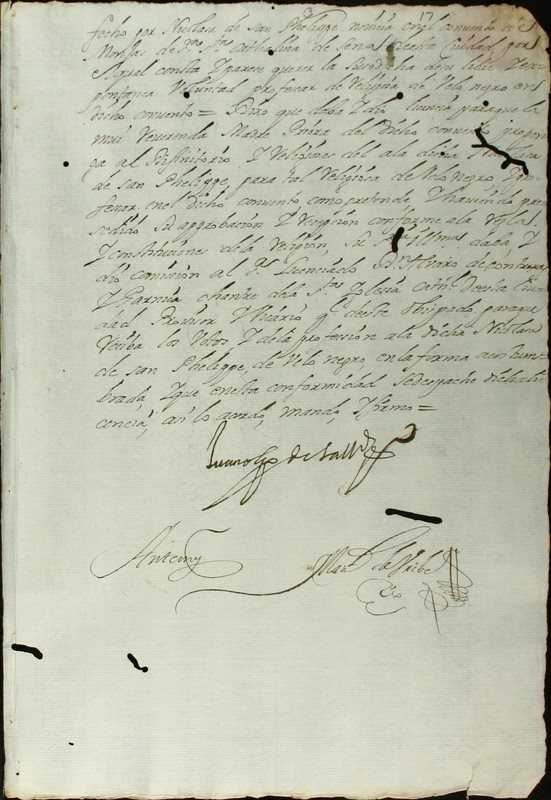 17
fecho por Nicolasa de san Phelippe novicia en el convento de
Monjas de sta Cathalina de Sena desta Ciudad, por
el qual consta y parece querer la susodicha de su libre y es
pontanea Voluntad professar de Religiosa de Velo negro en el
dicho convento = Dixo que daba y dio licencia para que la
mui Reverenda Madre Priora del dicho convento propon
ga al Difinitorio y Religiosas del a la dicha Nicolasa
de san Phelippe, para tal Religiosa de Velo negro y pro
fessar en el dicho convento como pretende, y haviendo pre
cedido su aprobacion y Recepcion conforme a la regla
y constituciones de la Religion, su Illma daba y
dio comission al Sr Licenciado D. Alvaro de
chantre de la sta Iglesia Cath. desta Ciu
dad Provisor y Vicario gl deste obispado, para que
reciba los Votos y de la profession a la dicha Nicolasa
de san Phelippe, de Velo negro, en la forma acostum
brada, y que en esta conformidad se despache dicha li
cencia, assi lo acordo, mando, y firmo =
Juan de
Ante my
de Uribe